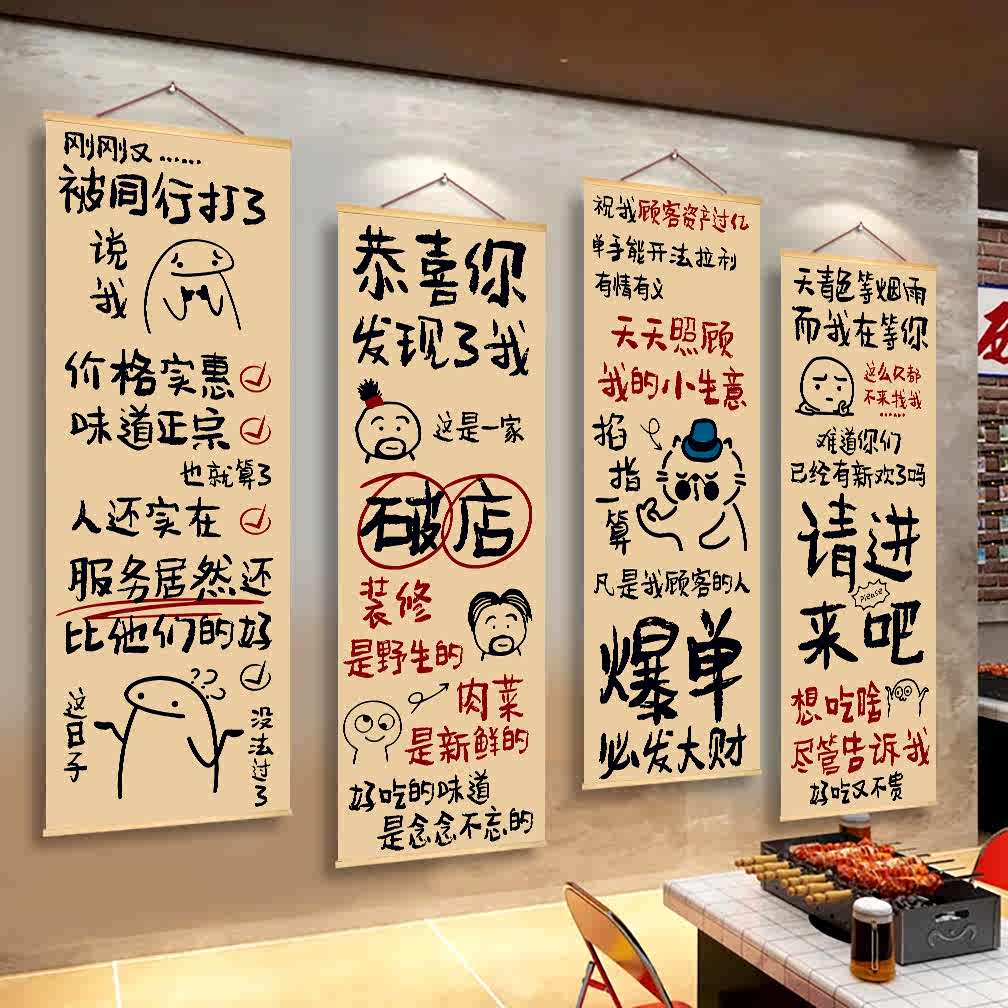 刚刚又……
被同行打了
说
我
价格实惠
味道正宗
也就算了
人还实在
服务居然还
比他们的好
??
这日子
没法过了
恭喜你
发现了我
这是一家
破店
装修
是野生的
肉菜
是新鲜的
好吃的味道
是念念不忘的
祝我顾客资产过亿
单手能开法拉利
有情有义
天天照顾
我的小生意
掐
指
一
算
凡是我顾客的人
爆单
必发大财
天青色等烟雨
而我在等你
这么久都
不来找我
……
难道你们
已经有新欢了吗
请进
please
来吧
想吃啥
尽管告诉我
好吃又不贵